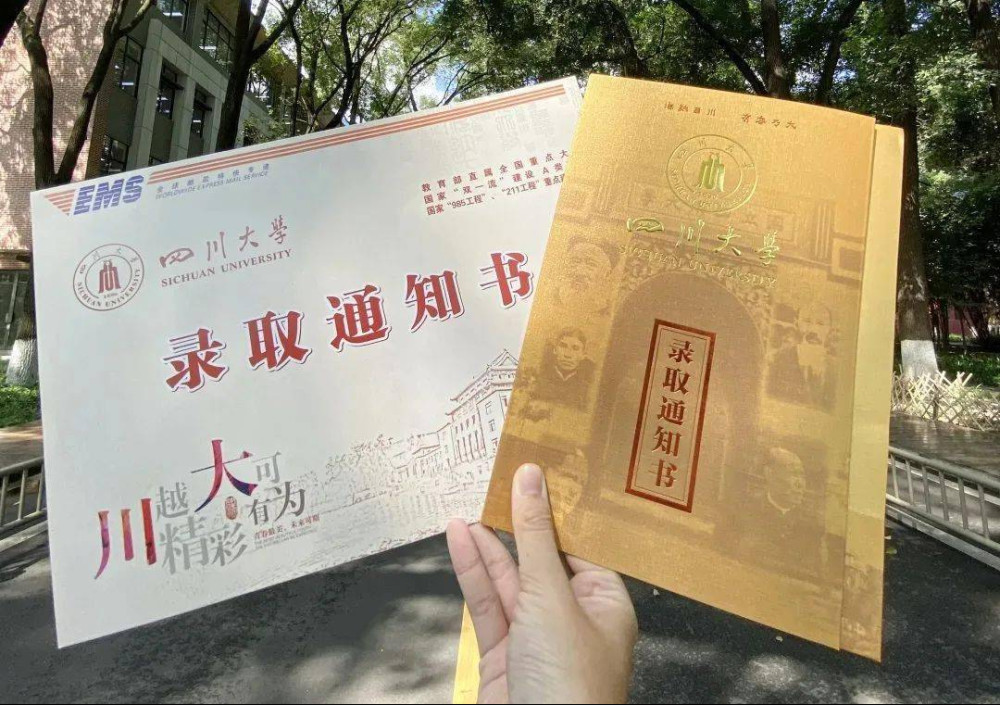 EMS
全球邮政特快专递
WORLDWIDE EXPRESS MAIL SERVICE
教育部直属全国重点大
国家“双一流”建设A类
国家“985工程”、“211工程”重点
四川大學
SICHUAN UNIVERSITY
SICHUAN UNIVERSITY
录取通知书
川越精彩
大有可为
青春最美，未来可期
海納百川 有容乃大
四川大學
SICHUAN UNIVERSITY
录取通知书